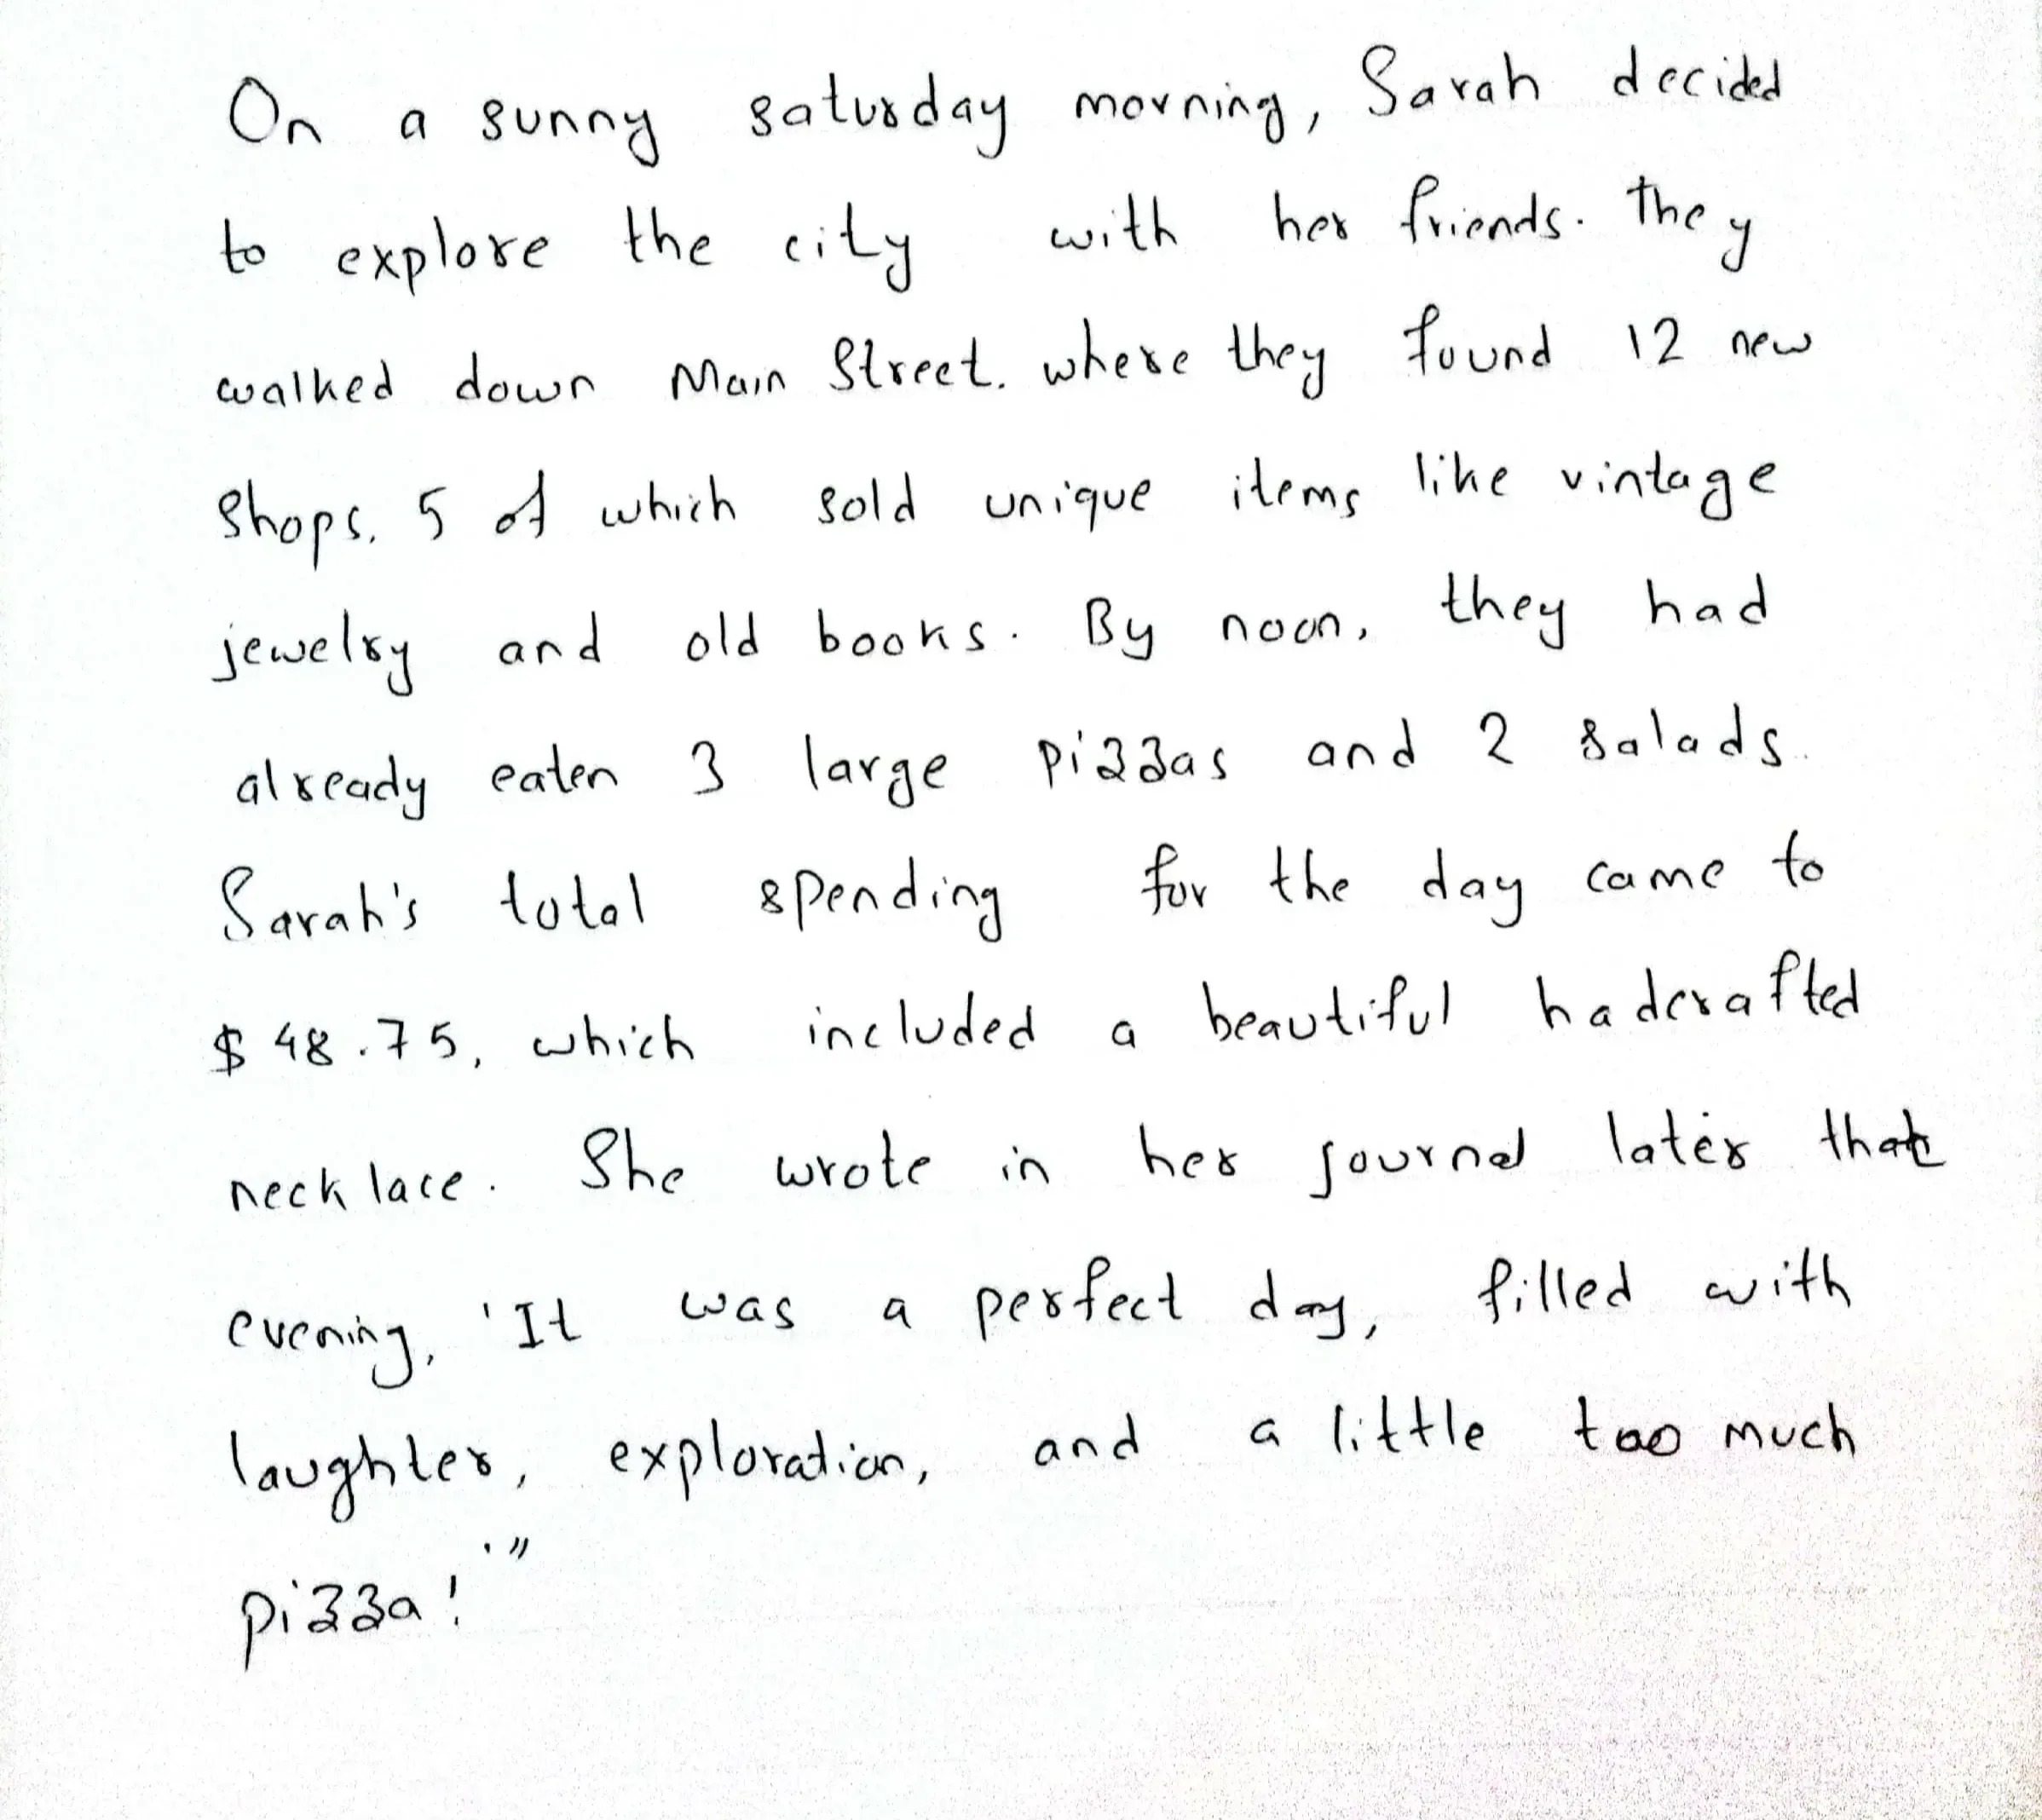 On a sunny saturday morning, Sarah decided
to explore the city with her friends. They
walked down Main Street. where they found 12 new
Shops, 5 of which sold unique items like vintage
jewelry and old books. By noon, they had
already eaten 3 large pizzas and 2 salads.
Sarah's total spending for the day came to
$48.75, which included a beautiful hadcrafted
necklace. She wrote in her journal later that
evening, 'It was a perfect day, filled with
laughter, exploration, and a little too much
pizza!'"